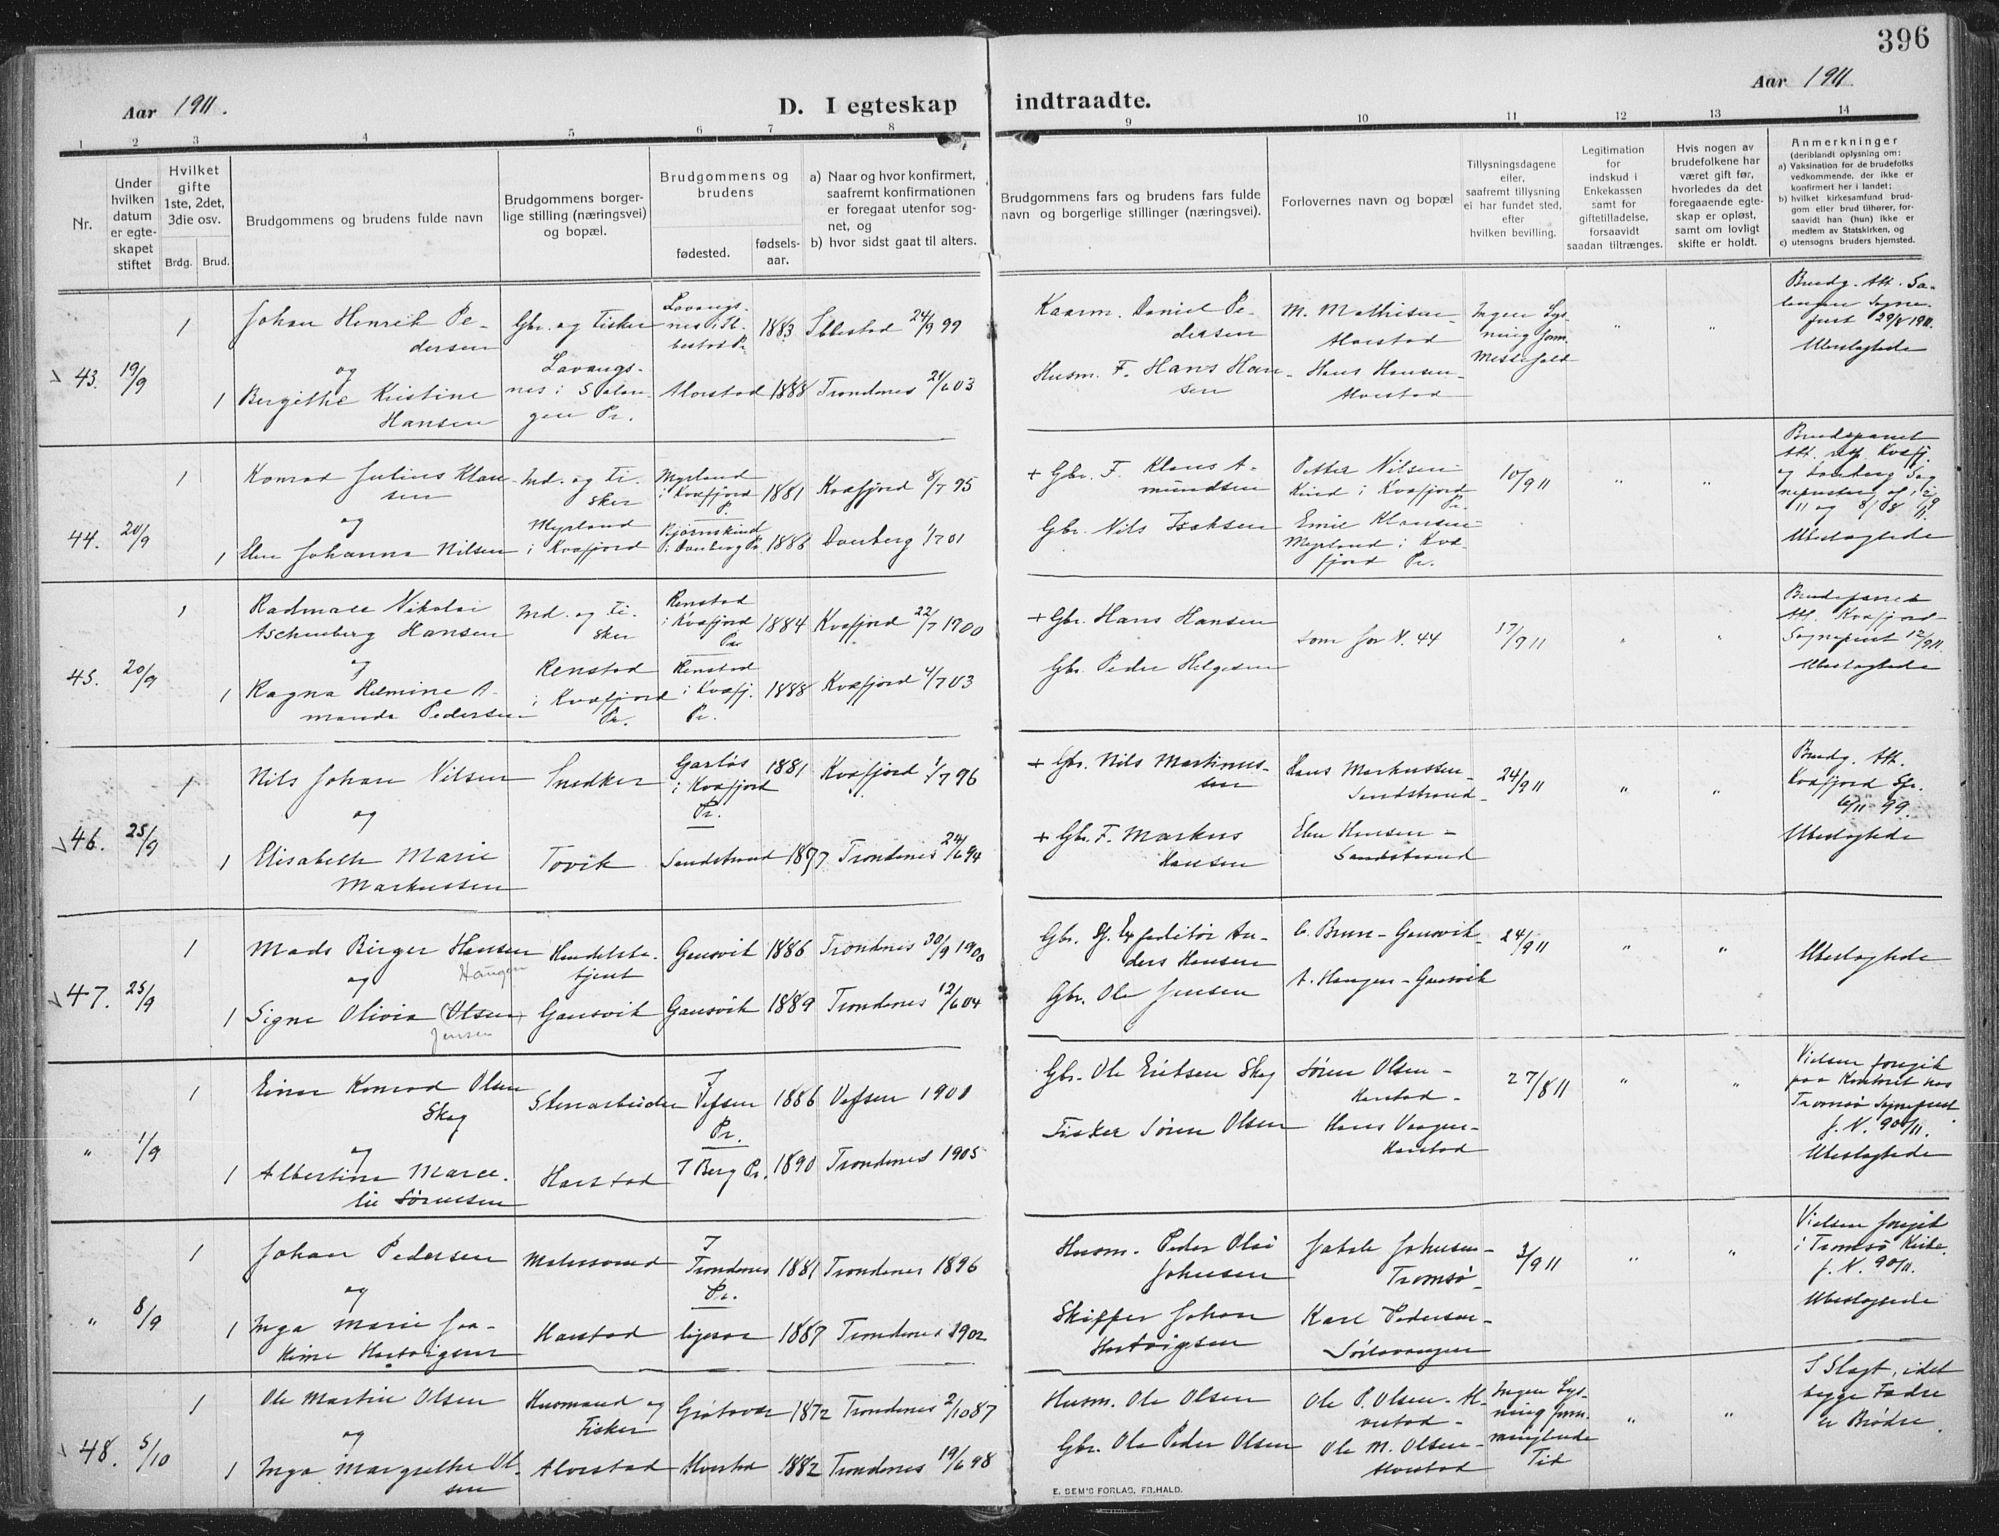 396
Aar 1911.
D. I egteskap indtraadte.
Aar 1911
1 2 3 4 5 6 7 8 9 10 11 12 13 14
Nr.
Under hvilken datum er egteskapet stiftet
Hvilket gifte 1ste, 2det, 3die osv.
Brdg. Brud.
Brudgommens og brudens fulde navn
Brudgommens borgerlige stilling (næringsvei) og bopæl.
Brudgommens og brudens
fødested.
fødselsaar.
a) Naar og hvor konfirmert, saafremt konfirmationen er foregaat utenfor sognet, og
b) hvor sidst gaat til alters.
Brudgommens fars og brudens fars fulde navn og borgerlige stillinger (næringsvei).
Forlovernes navn og bopæl
Tillysningsdagene eller, saafremt tillysning ei har fundet sted, efter hvilken bevilling.
Legitimation for indskud i Enkekassen samt for giftetilladelse, forsaavidt saadan tiltrænges.
Hvis nogen av brudefolkene har været gift før, hvorledes da det foregaaende egteskap er opløst, samt om lovligt skifte er holdt.
Anmerkninger
(deriblandt oplysning om:
a) Vaksination for de brudefolks vedkommende, der ikke er konfirmert her i landet;
b) hvilket kirkesamfund brudgom eller brud tilhører, forsaavidt han (hun) ikke er medlem av Statskirken, og
c) utensogns bruders hjemsted.
43. 19/9
1 Johan Henrik Pedersen
Gbr. og Fisker
1883
24/9 99
Kaarm. Daniel Pedersen
M. Mathisen
og
1 Bergithe Kristine Hansen
Lavangsnes i Salangen Pr.
1888 Trondenes 21/6 03
Husm. F. Hans Hansen
Hans Hansen
Ingen Lysning
Ubeslægtede
44. 20/9
1 Konrad Julius Klausen
Ind. og Fisker
Myrland i Kvæfjord P.
1881 Kvæfjord 8/7 95
+ Gbr. F. Klaus Amundsen
Petter Nilsen
i Kvæfjord Pr.
10/9 11
og
1 Johanna Nilsen
Myrland i Kvæfjord
1886 Dverberg 1/7 01
Gbr. Nils Isaksen
Emil Klausen
Myrland i Kvæfjord Pr.
Ubeslægtede
45. 20/9
1 Nikolai Aschenberg Hansen
Ind. og Fisker
Renstad i Kvæfjord Pr.
1884 Kvæfjord 22/7 1900
+ Gbr. Hans Hansen
som for N. 44
17/9 11
og
1 Ragna Helmine Amanda Pedersen
Renstad i Kvæfjord Pr.
Renstad i Kvæfj. Pr.
1888 Kvæfjord 4/7 03
Gbr. Peder Helgesen
Brudeparret Att. Kvæfjord Sogneprest 12/9 11.
Ubeslægtede
46. 25/9
1 Nils Johan Nilsen
Snedker
i Kvæfjord Pr.
1881 Kvæfjord 1/7 96
+ Gbr. Nils Martinussen
Hans Markussen - Sandstrand
24/9 11
og
1 Elisabeth Marie Markussen
Tovik
Sandstrand 1877 Trondenes 24/6 94
+ Gbr. F. Markus Hansen
Hansen - Sandstrand
Brudg. Att. Kvæfjord
Ubeslægtede
47. 25/9
1 Mads Birger Hansen
Haugen
Handelsbetjent
Gausvik 1886 Trondenes 30/9 1900
Gbr. Expeditør Anders Hansen
C. Brun - Gausvik
24/9 11
og
1 Signe Olivia (Olsen)
Jensen
Gausvik
Gausvik 1889 Trondenes 12/6 04
Gbr. Ole Jensen
A. Haugen - Gausvik
Ubeslægtede
" 1/9
1 Einar Konrad Olsen Skog
Stenarbeider
Vefsen Pr.
1886 Vefsen 1901
Gbr. Ole Eriksen Skog
Sören Olsen - Harstad
27/8 11
og
1 Albertine Marcelie Sörensen
Harstad
I Berg Pr. 1890 Trondenes 1905
Fisker Sören Olsen
Hans - Harstad
Vielsen foregik paa Kontoret hos Tromsö Sogneprest j. N. 90/11.
Ubeslægtede
" 8/9
1 Johan Pedersen
Malersvend
I Trondenes Pr.
1881 Trondenes 1896
Husm. Peder Olai Johnsen
Johnsen - Tromsö
3/9 11
og
1 Inga Marie Joakime Hartvigsen
Harstad
ligesaa 1887 Trondenes 1902
Skipper Johan Hartvigsen
Karl Pedersen
Vielsen foregik i Tromsö Kirke. j. N. 90/11.
Ubeslægtede
48. 5/10
1 Ole Martin Olsen
Husmand og Fisker
Grötavær 1872 Trondenes 2/10 87
Husm. Ole Olsen
Ole P. Olsen - Alvestad
Ingen Lysning
og
1 Inga Margrethe Olsen
Alvestad
Alvestad 1882 Trondenes 19/6 98
Gbr. Ole Peder Olsen
Ole M. Olsen - Alvestad
Tid
I Slegt, idet begge Fædre er Brödre
E. SEM'S FORLAG, FR.HALD.